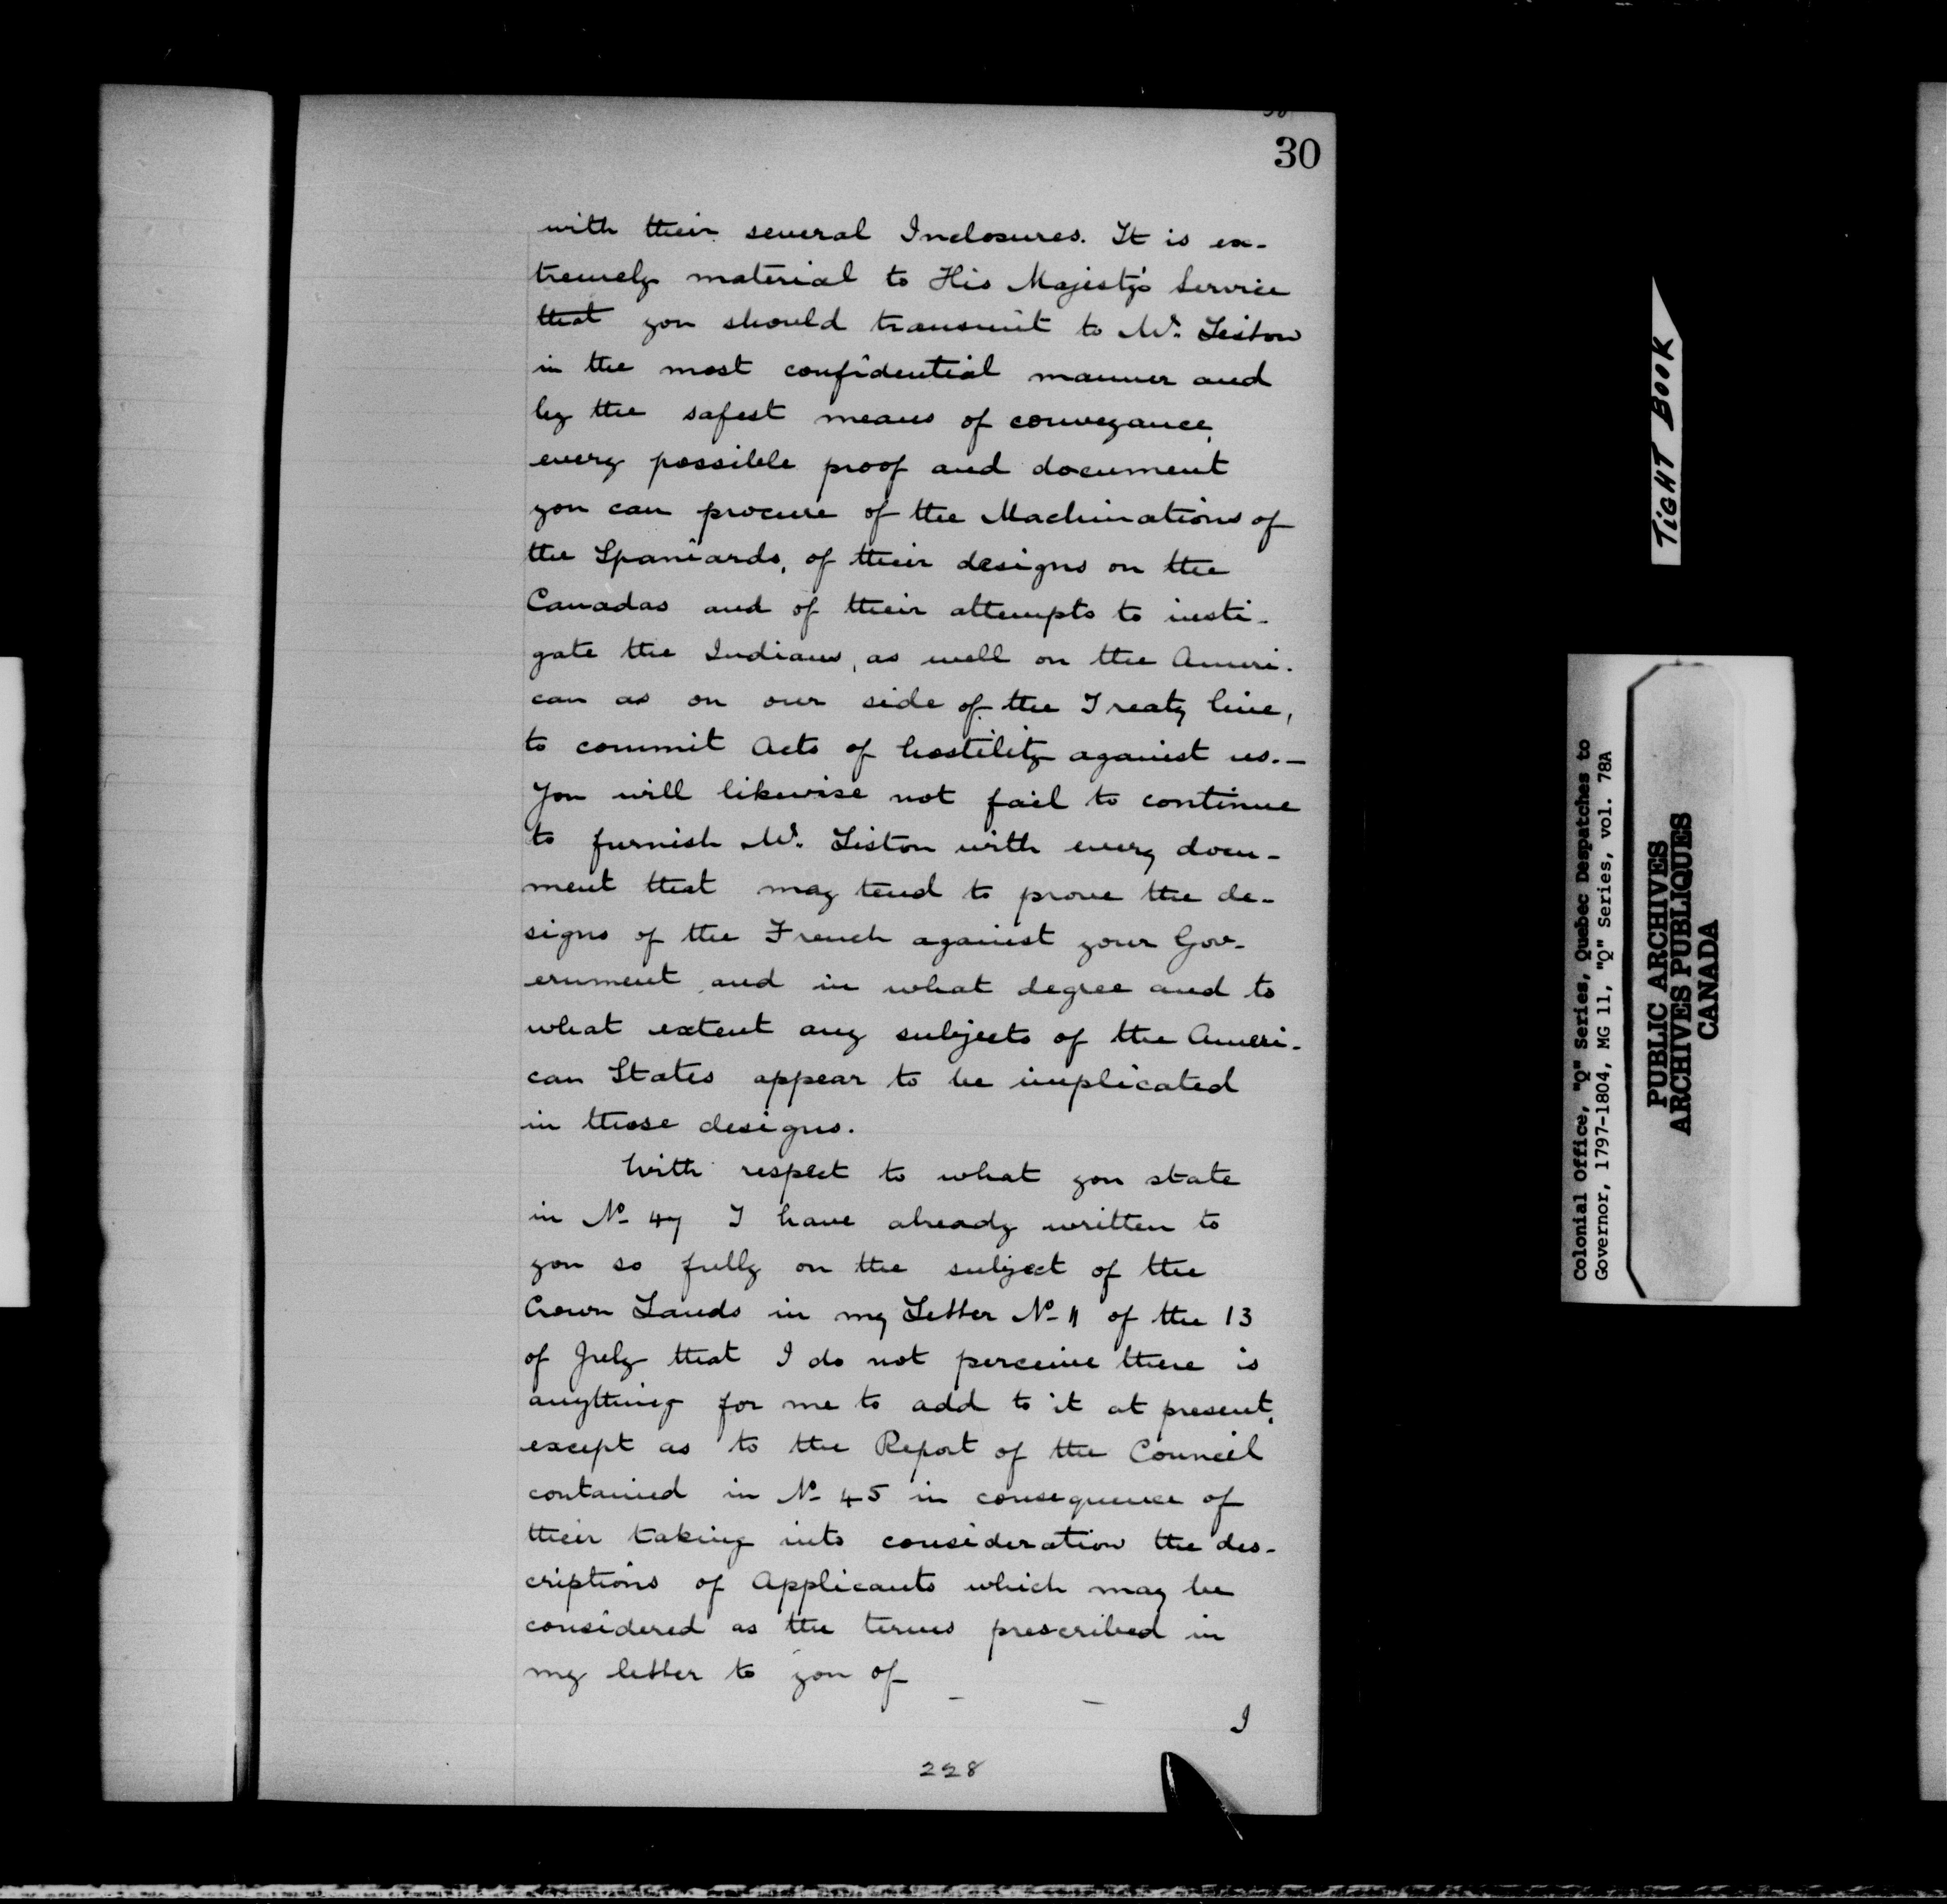 30
with their several Inclosures. It is ex-
tremely material to His Majesty's Service
that you should transmit to Mr. Liston
in the most confidential manner and
by the safest means of conveyance,
every possible proof and document
you can procure of the Machinations of
the Spaniards, of their designs on the
Canadas and of their attempts to insti-
gate the Indians, as well on the Ameri-
can as on our side of the Treaty line,
to commit Acts of hostility against us.—
You will likewise not fail to continue
to furnish Mr. Liston with every docu-
ment that may tend to prove the de-
signs of the French against your Gov-
ernment, and in what degree and to
what extent any subjects of the Ameri-
can States appear to be implicated
in those designs.
With respect to what you state
in No 47 I have already written to
you so fully on the subject of the
Crown Lands in my Letter No 11 of the 13
of July that I do not perceive there is
anything for me to add to it at present,
except as to the Report of the Council
contained in No 45 in consequence of
their taking into consideration the des-
criptions of Applicants which may be
considered as the terms prescribed in
my letter to you of
I
228
TIGHT BOOK
Colonial Office, "Q" Series, Quebec Despatches to
Governor, 1797-1804, MG 11, "Q" Series, vol. 78A
PUBLIC ARCHIVES
ARCHIVES PUBLIQUES
CANADA